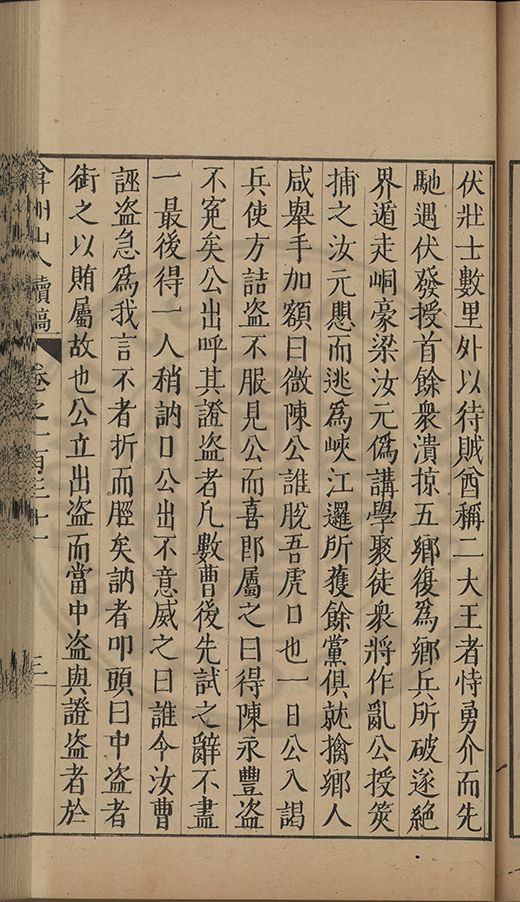 伏壯士數里外以待賊酋稱二大王者恃勇介而先
馳遇伏發授首餘衆潰掠五鄉復爲鄉兵所破遂絶
界遁走峒豪梁汝元僞講學聚徒衆將作亂公授筴
捕之汝元懇而逃爲峽江邏所獲餘黨俱就擒鄉人
咸舉手加額曰微陳公誰脫吾虎口也一日公入謁
兵使方詰盗不服見公而喜卽屬之曰得陳永豐盗
不寃矣公出呼其證盗者凡數曹後先試之辭不盡
一最後得一人稍訥口公出不意威之曰誰令汝曹
誣盗急爲我言不者折而脛矣訥者叩頭曰中盗者
銜之以賄屬故也公立出盗而當中盗與證盗者於
弇州山人續稿 卷之一百三十一 三